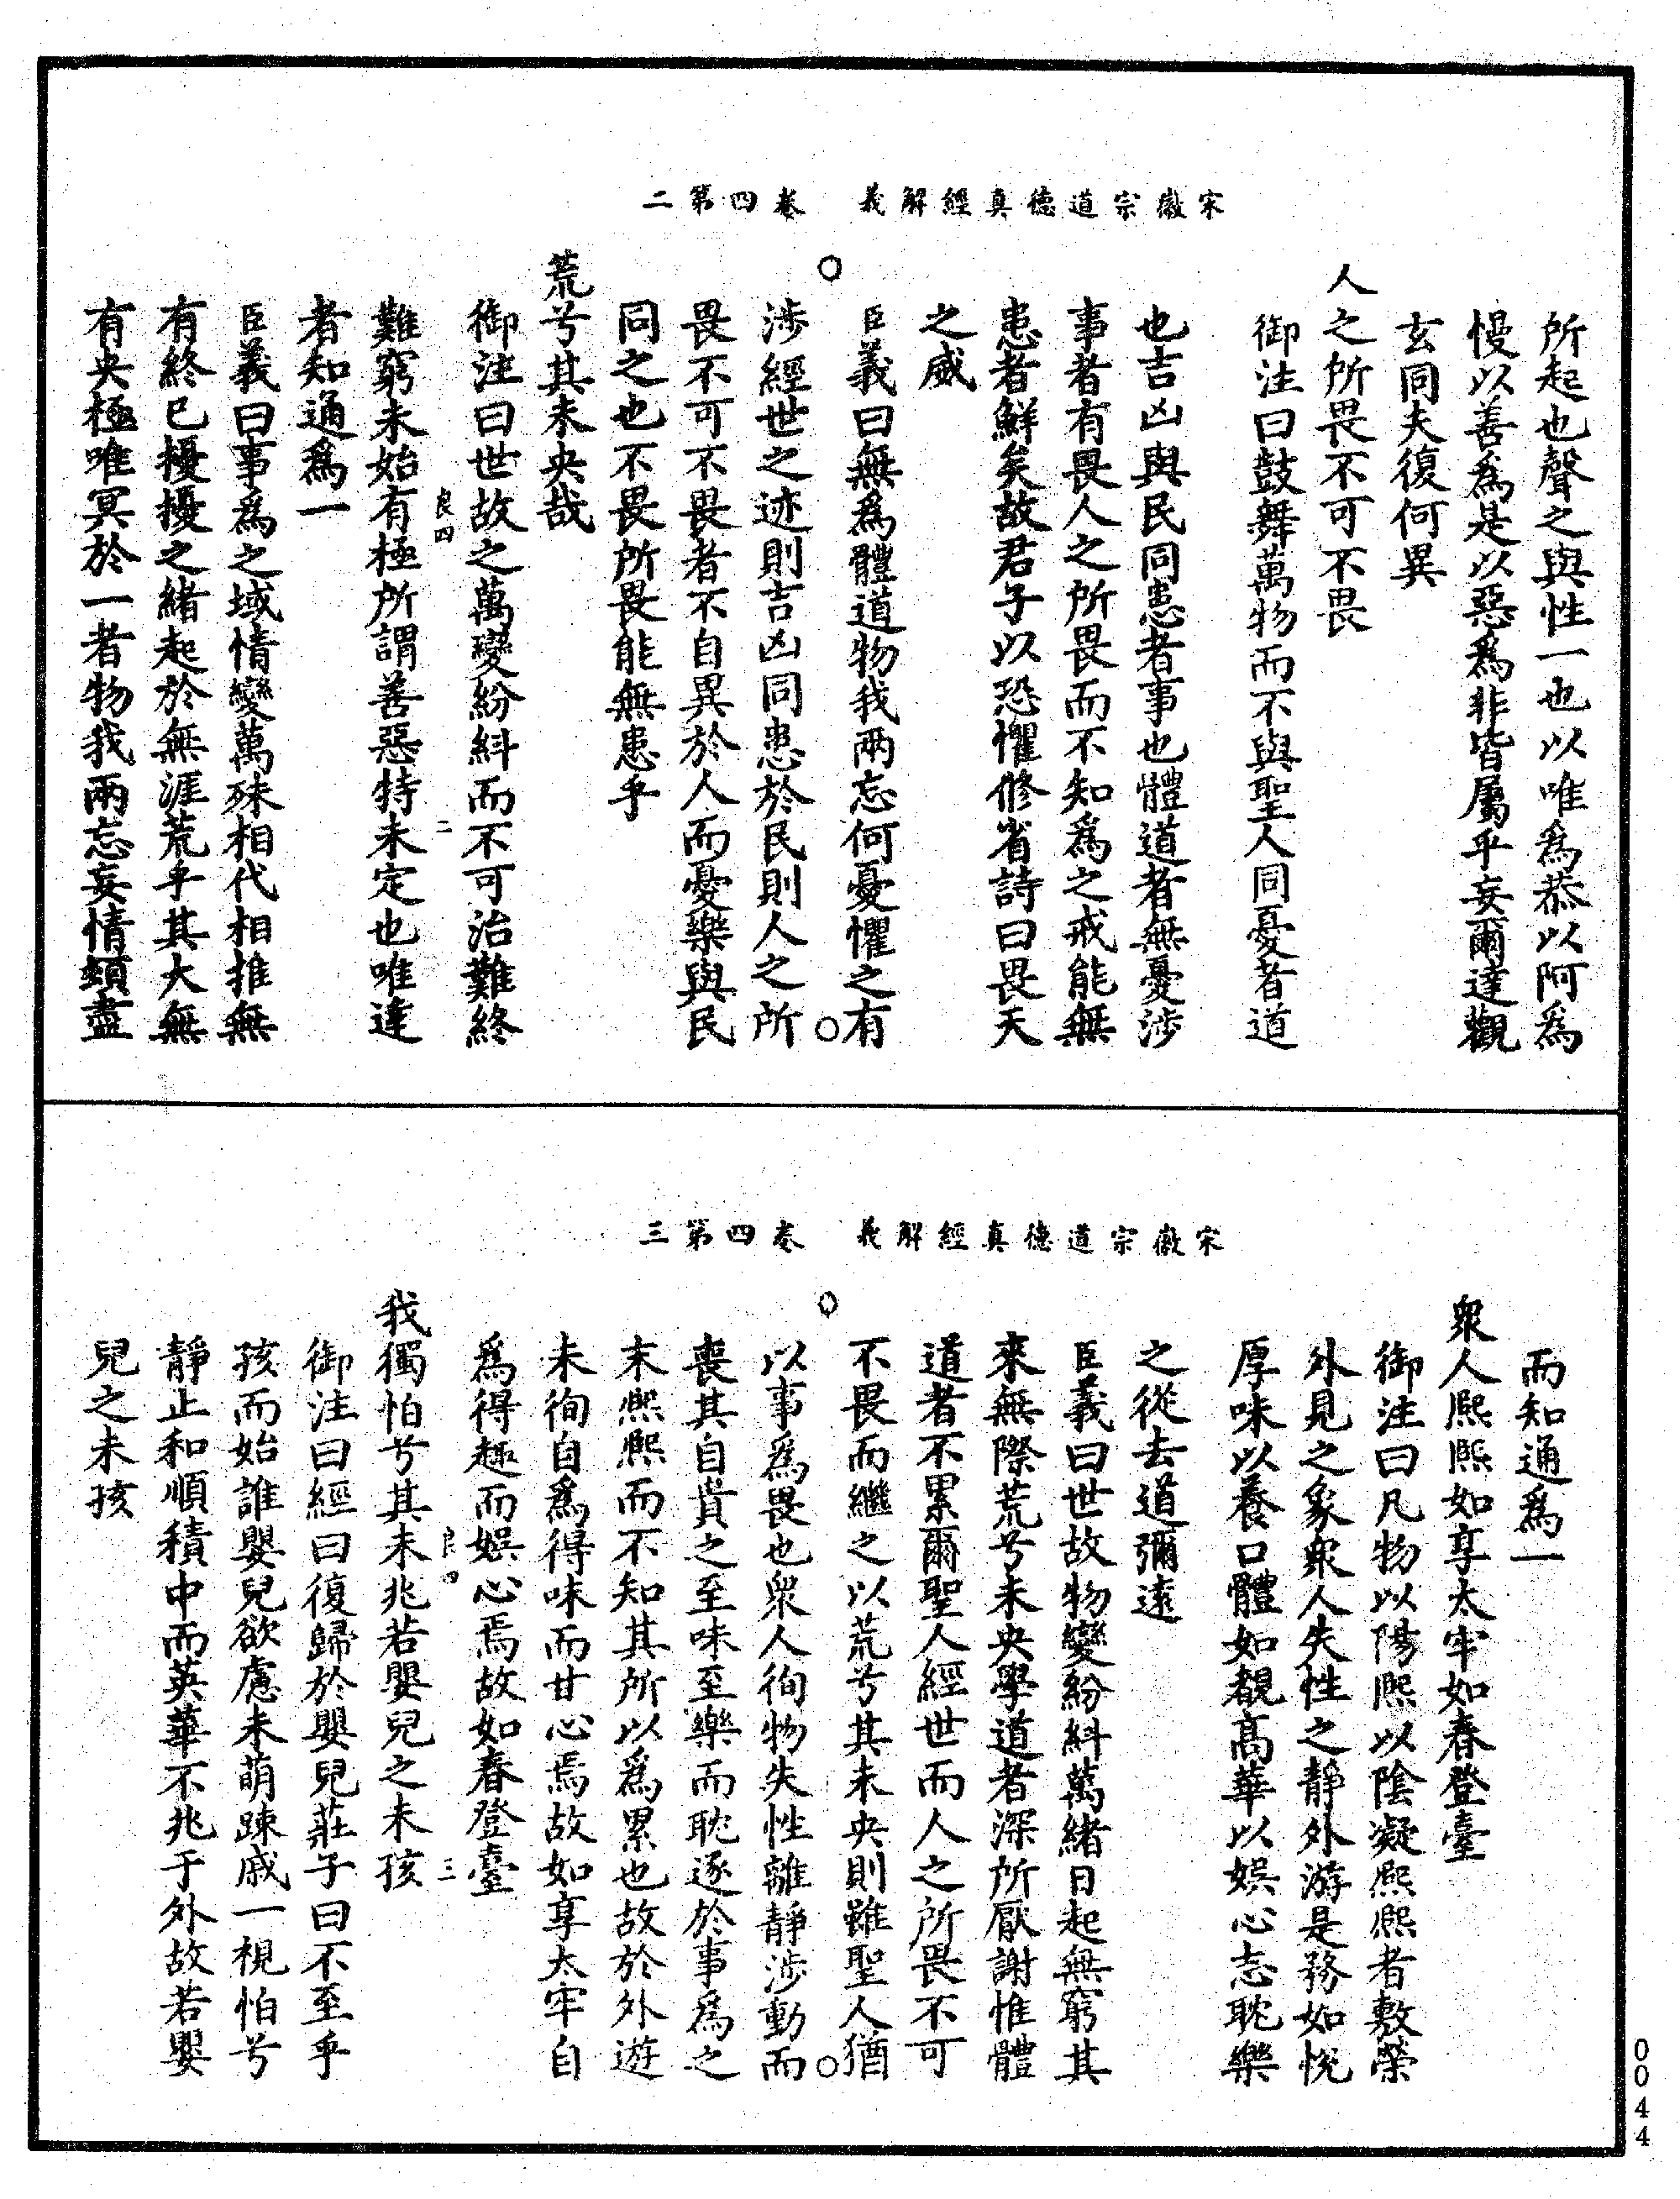 宋徽宗道德真經解義　卷四第二
所起也聲之與性一也以唯為恭以阿為
慢以善為是以惡為非皆屬乎妄爾達觀
玄同夫復何異
人之所畏不可不畏
御注曰鼓舞萬物而不與聖人同憂者道
也吉凶與民同患者事也體道者無憂涉
事者有畏人之所畏而不知為之戒能無
患者鮮矣故君子以恐懼修省詩曰畏天
之威
臣義曰無為體道物我兩忘何憂懼之有
涉經世之迹則吉凶同患於民則人之所
畏不可不畏者不自異於人而憂樂與民
同之也不畏所畏能無患乎
荒兮其未央哉
御注曰世故之萬變紛糾而不可治難終
良四　二
難窮未始有極所謂善惡特未定也唯達
者知通為一
臣義曰事為之域情變萬殊相代相推無
有終已擾擾之緒起於無涯荒乎其大無
有央極唯冥於一者物我兩忘妄情頓盡
宋徽宗道德真經解義　卷四第三
而知通為一
眾人熙熙如享太牢如春登臺
御注曰凡物以陽熙以陰凝熙熙者敷榮
外見之象眾人失性之靜外游是務如悅
厚味以養口體如覩高華以娛心志耽樂
之從去道彌遠
臣義曰世故物變紛糾萬緒日起無窮其
來無際荒兮未央學道者深所厭謝惟體
道者不累爾聖人經世而人之所畏不可
不畏而繼之以荒兮其未央則雖聖人猶
以事為畏也眾人徇物失性離靜涉動而
喪其自貴之至味至樂而耽逐於事為之
末熙熙而不知其所以為累也故於外遊
未徇自為得味而甘心焉故如享太牢自
為得趣而娛心焉故如春登臺
良四　三
我獨怕兮其未兆若嬰兒之未孩
御注曰經曰復歸於嬰兒莊子曰不至乎
孩而始誰嬰兒欲慮未萌踈戚一視怕兮
靜止和順積中而英華不兆于外故若嬰
兒之未孩
0044